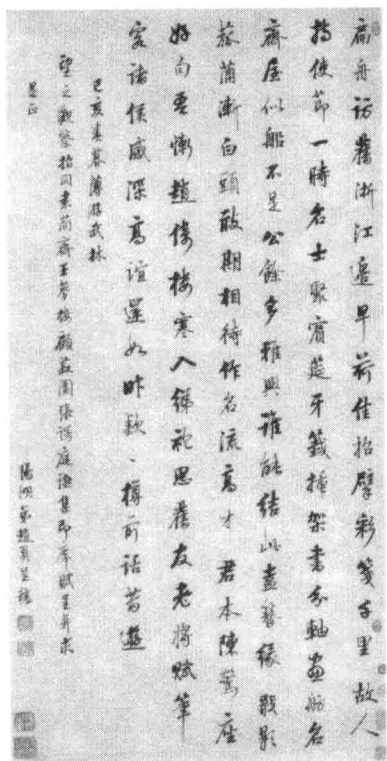 扁舟訪舊浙江邊早荷佳招擘彩箋千里故人
持使節一時名士聚賓筵牙籤插架書分軸畫舫名
齋屋似船不是公餘多雅興誰能結此盍簪緣顧影
菰蒲漸白頭敢期相待作名流高才君本陳驚座
好句吾慚趙倚樓寒入綈袍思舊友老將賦筆
客諸侯感深高誼還如昨款、樽前話昔遊
己亥春暮薄游武林
望之觀察招同袁簡齋王夢樓顧菉園張諤庭讌集即席賦呈并求
是正
陽湖弟趙翼